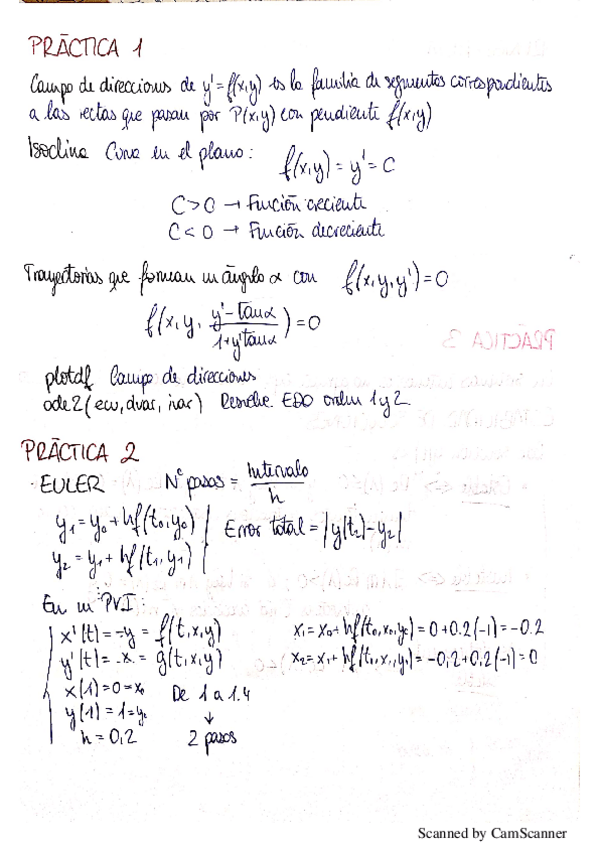 PRÁCTICA 1
Campo de direcciones de y'=f(x,y) es la familia de segmentos correspondientes
a las rectas que pasan por P(x,y) con pendiente f(x,y)
Isoclina Curva en el plano: f(x,y) = y' = C
C>0 → Función creciente
C<0 → Función decreciente
Trayectorias que forman un ángulo α con f(x,y,y')=0
f(x,y, (y'-tanα)/(1+y'tanα))=0
plotdf Campo de direcciones
ode2(ecu,dvar,ivar) Resuelve EDO orden 1 y 2
PRÁCTICA 3
PRÁCTICA 2
·EULER Nº pasos = Intervalo/h
y₁=y₀+hf(t₀,y₀) Error total=|y(t₂)-y₂|
y₂=y₁+hf(t₁,y₁)
En un PVI:
x'(t)=-y=f(t,x,y) x₁=x₀+hf(t₀,x₀,y₀)=0+0.2(-1)=-0.2
y'(t)=-x=g(t,x,y) x₂=x₁+hf(t₁,x₁,y₁)=-0,2+0.2(-1)=0
x(1)=0=x₀ De 1 a 1.4
y(1)=1=y₀ ↓
h=0,2 2 pasos
Scanned by CamScanner